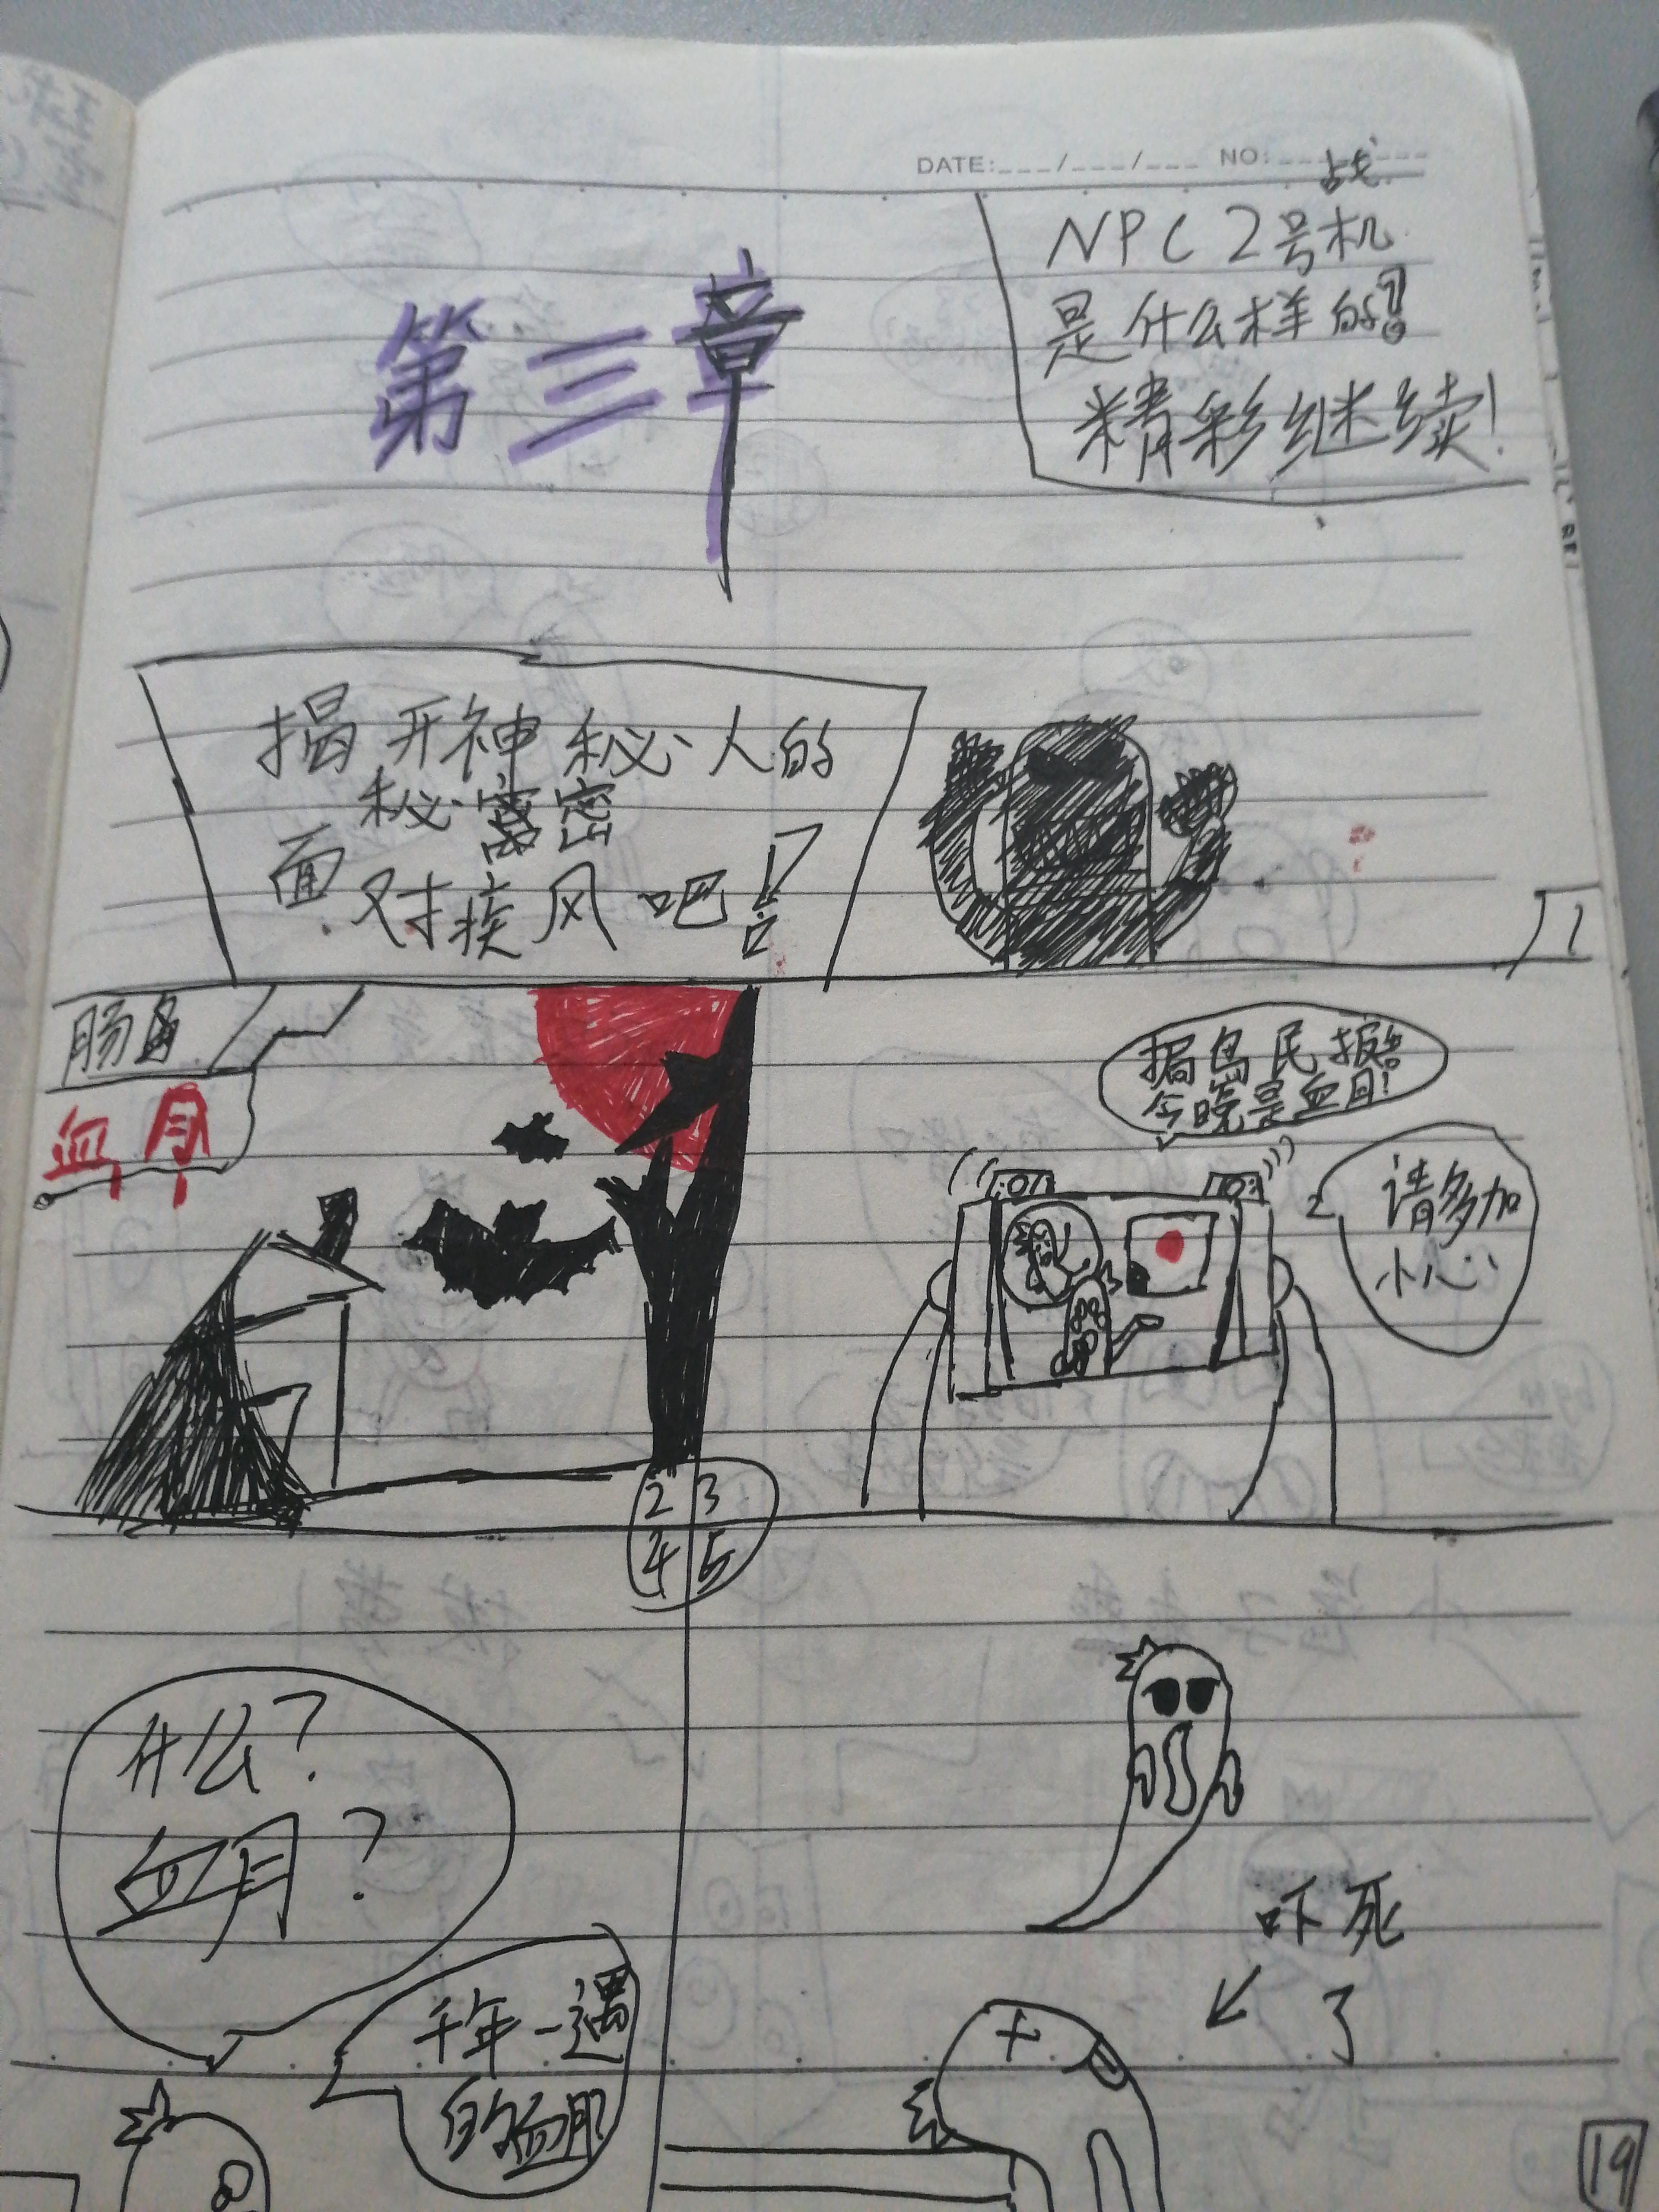 DATE:___/___/___ NO:
战
NPC 2号机
是什么样的?
精彩继续!
第三章
揭开神秘人的
秘密
面对疾风吧!
1
肠岛
血月
据岛民报告
今晚是血月!
请多加
小心
2 3
4 5
什么?
血月?
千年一遇
的血月
吓死
了
19